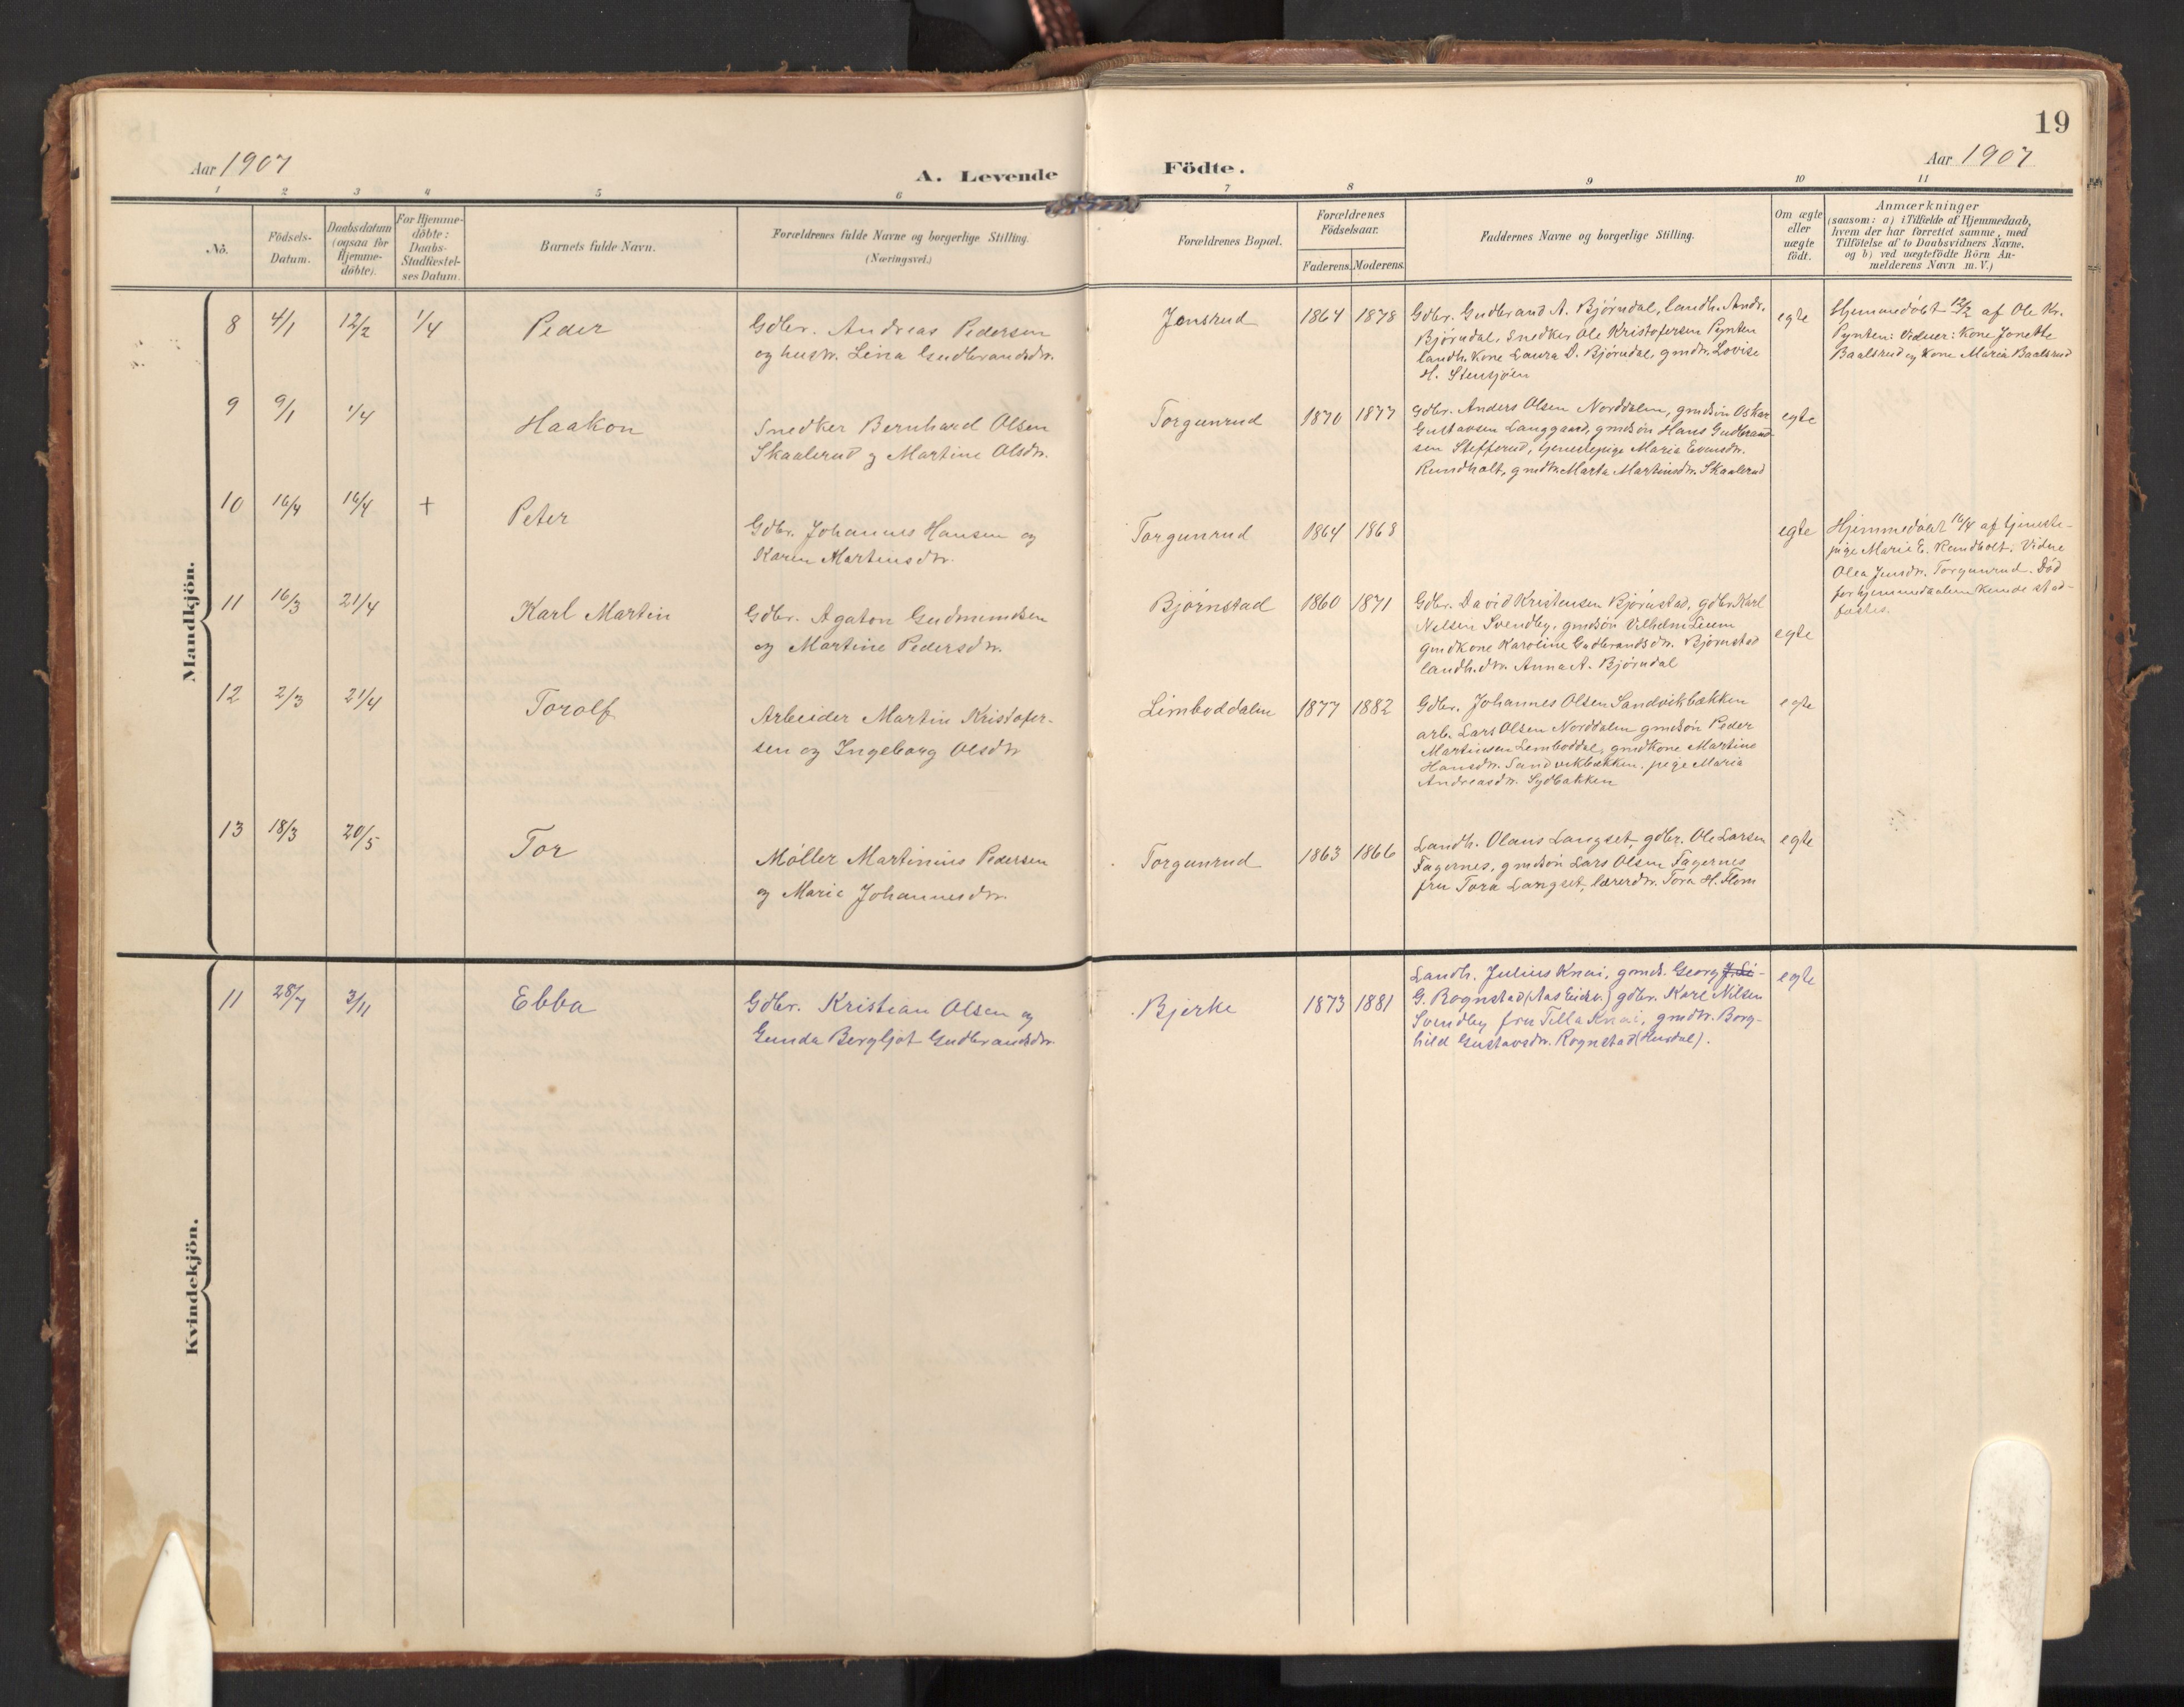 19
Aar 1907
A. Levende Födte.
Aar 1907
1 2 3 4 5 6 7 8 9 10 11
Nö.
Födsels-
Datum.
Daabsdatum
(ogsaa for
Hjemme-
döbte).
For Hjemme-
döbte:
Daabs-
Stadfæstel-
ses Datum.
Barnets fulde Navn.
Forældrenes fulde Navne og borgerlige Stilling.
(Næringsvei.)
Forældrenes Bopæl.
Forældrenes
Födselsaar.
Faderens. Moderens.
Faddernes Navne og borgerlige Stilling.
Om ægte
eller
uægte
födt.
Anmærkninger
(saasom: a) i Tilfælde af Hjemmedaab,
hvem der har forrettet samme, med
Tilföielse af to Daabsvidners Navne.
og b) ved uægtefödte Börn An-
melderens Navn m. V.)
Mandkjön.
8 4/1 12/2 1/4 Peder
Gdbr. Andreas Pedersen
og hustr. Lina Gudbrandsdr.
Jensrud 1864 1878
Gdbr. Gudbrand A. Bjørndal, landh. Andr.
Bjørndal, Snedker Ole Kristofersen Pynten
landh. kone Laura D. Bjørndal, gmdtr. Lovise
H. Stensjøen
egte
Hjemmedøbt 12/2 af Ole Kr.
Pynten: Vidner: Kone Jonette
Baalsrud og Kone Maria Baalsrud
9 9/1 1/4 Haakon
Snedker Bernhard Olsen
Skaalerud og Martine Olsdr.
Torgunrud 1870 1877
Gdbr. Anders Olsen Norddalen, gmdsøn Oskar
Gustavsen Langgaard, gmdsøn Hans Gudbrand-
sen Stefferud, tjenestepige Maria Evensdr.
Rundholt, gmdtr. Marta Martinsdr. Skaalerud
egte
10 16/4 16/4 + Peter
Gdbr. Johannes Hansen og
Karen Martinsdr.
Torgunrud 1864 1863
egte
Hjemmedøbt 16/4 af tjeneste-
pige Marie E. Rundholt: Vidne
Olea Jensdr. Torgunrud. Død
før hjemmedaaben kunde stad-
fæstes.
11 16/3 21/4 Karl Martin
Gdbr. Agaton Gudmundsen
og Martine Pedersdr.
Bjørnstad 1860 1871
Gdbr. David Kristensen Bjørnstad, gdbr. Karl
Nilsen Svendby, gmdsøn Vilhelm Lium
gmdkone Karoline Gudbrandsdr. Bjørnstad
landh.dtr. Anna A. Bjørndal
egte
12 2/3 21/4 Torolf
Arbeider Martin Kristofer-
sen og Ingeborg Olsdr
Limboddalen 1877 1882
Gdbr. Johannes Olsen Sandvikbækken
arb. Lars Olsen Norddalen gmdsøn Peder
Martinsen Lemboddal, gmdkone Martine
Hansdr. Sandvikbækken. pige Maria
Andreasdr. Sydbakken
egte
13 18/3 20/5 Tor
Møller Martinius Pedersen
og Marie Johannesdr.
Torgunrud 1863 1866
Landh. Olaus Langset, gdbr. Ole Larsen
Fagernes, gmdsøn Lars Olsen Fagernes
fru Tora Langset, lærerdtr. Tora H. Flom
egte
Kvindekjön.
11 28/7 3/11 Ebba
Gdbr. Kristian Olsen og
Gunda Bergljot Gudbrandsdr.
Bjerke 1873 1881
Landh. Julius Knai, gmds. Georg
G. Rognstad (Aas Eidsv.) gdbr. Karl Nilsen
Svendby fru Tella Knai, gmdtr. Borg-
hild Gustavsdr. Rognstad (Hurdal).
egte